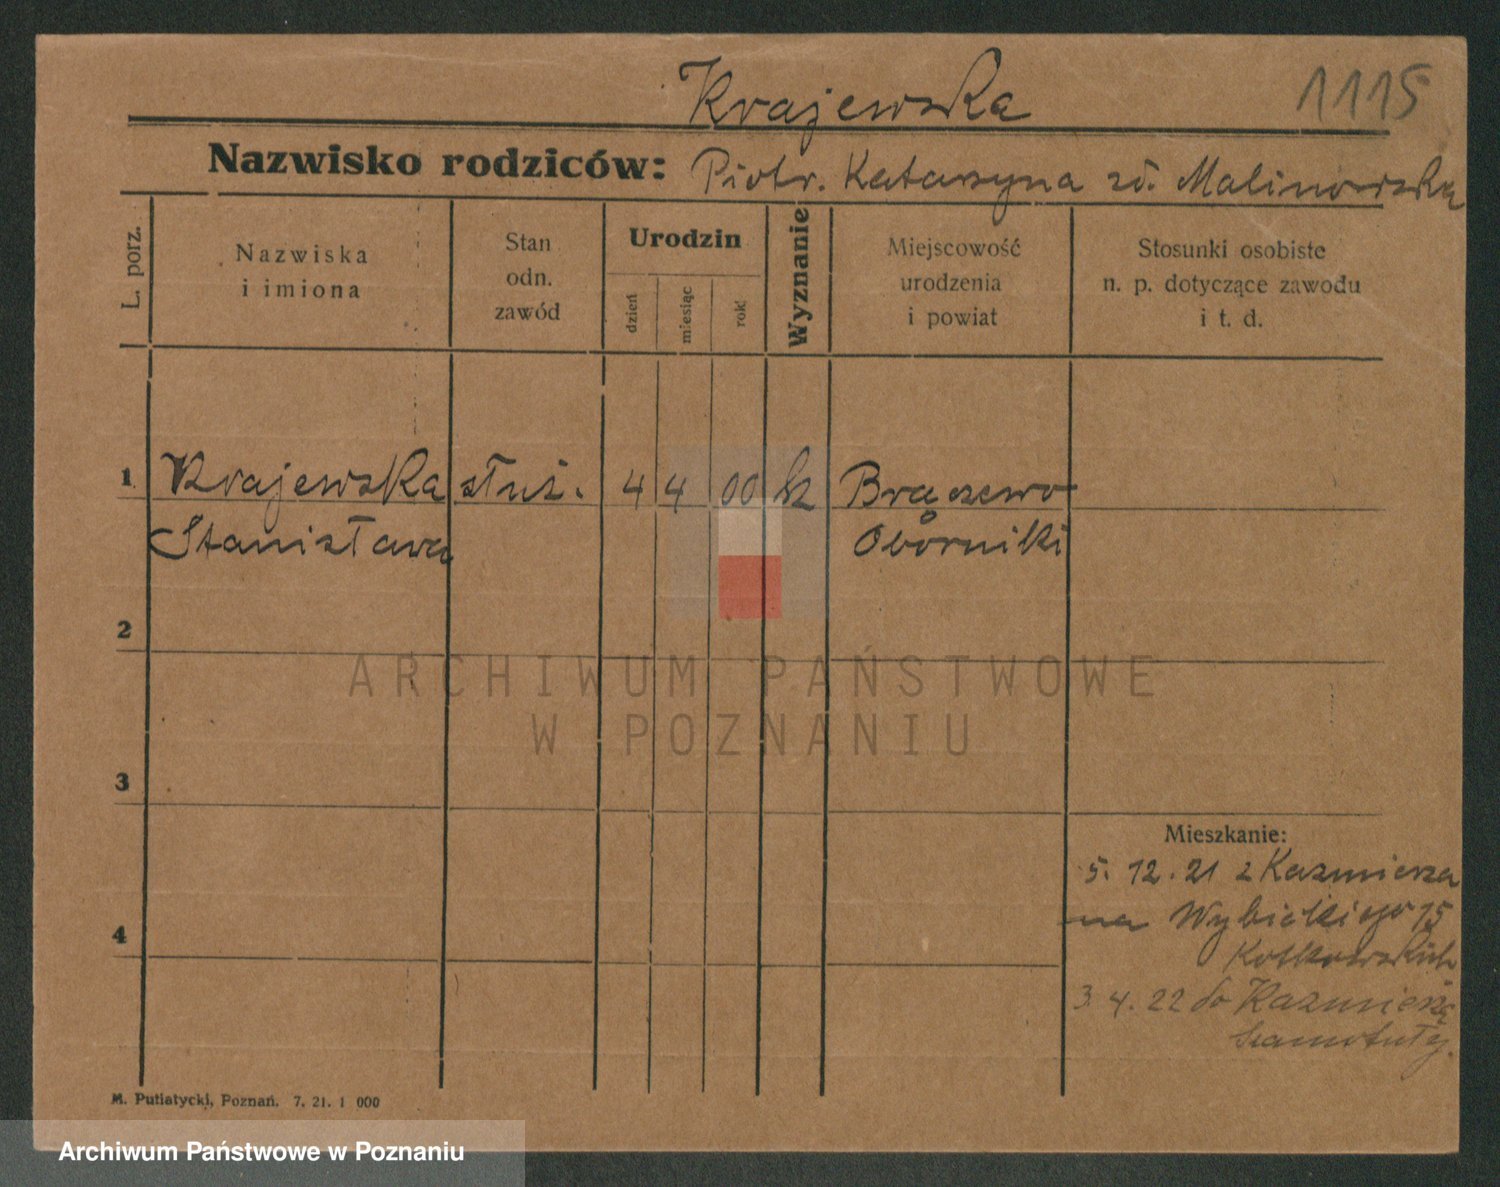 Krajewska 1115
Nazwisko rodziców: Piotr. Katarzyna zd. Malinowska
L. porz.
Nazwiska
i imiona
Stan
odn.
zawód
Urodzin
dzień
miesiąc
rok
Wyznanie
Miejscowość
urodzenia
i powiat
Stosunki osobiste
n. p. dotyczące zawodu
i t. d.
1 Krajewska służ. 4 4 00 k Brączewo
Stanisława Oborniki
2
ARCHIWUM PAŃSTWOWE
W POZNANIU
3
Mieszkanie:
5. 12. 21 z Kazmierza
na Wybickiego 15
4
3. 4. 22 do Kazmierza
Szamotuły.
M. Putiatycki, Poznań. 7. 21. 1 000
Archiwum Państwowe w Poznaniu